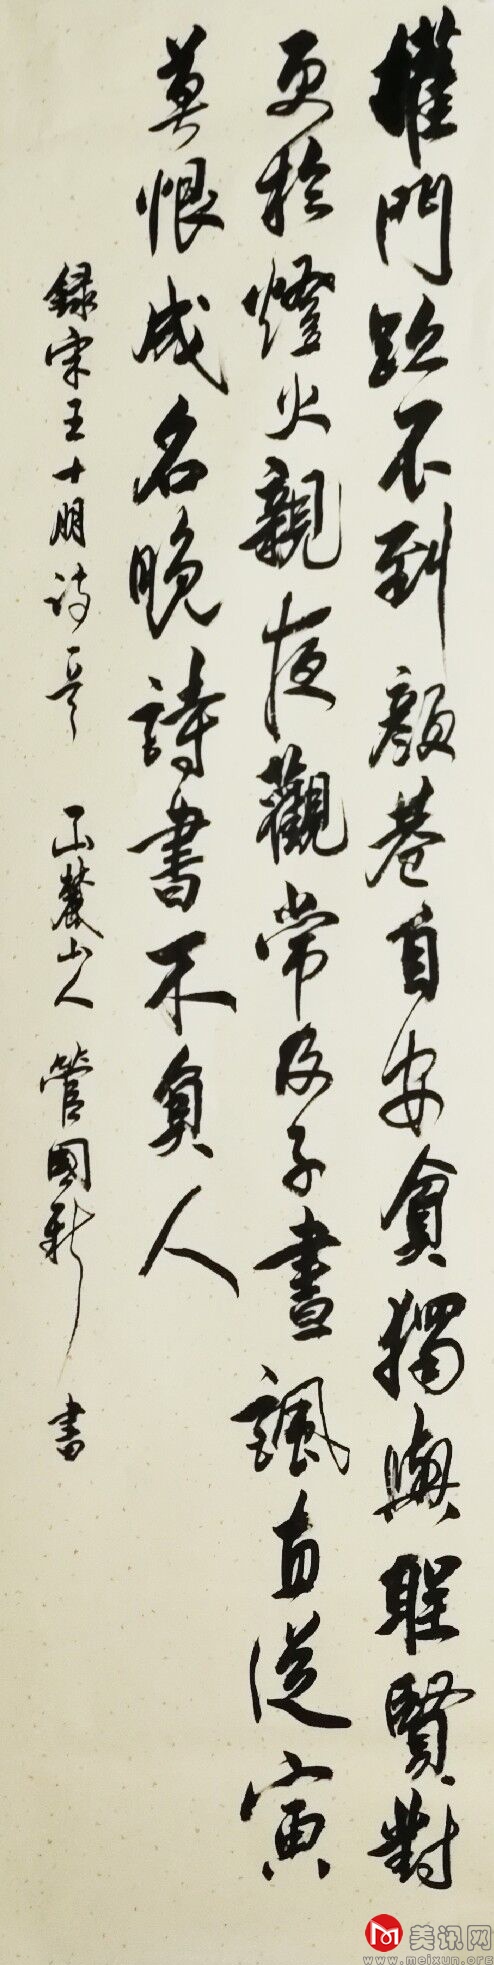 權門跡不到顏巷自安貧獨與聖賢對
更於燈火親夜觀常及子晝諷直從寅
莫恨成名晚詩書不負人
録宋王十朋诗一首 麓山人 管國新 書
美讯网
www.meixun.org